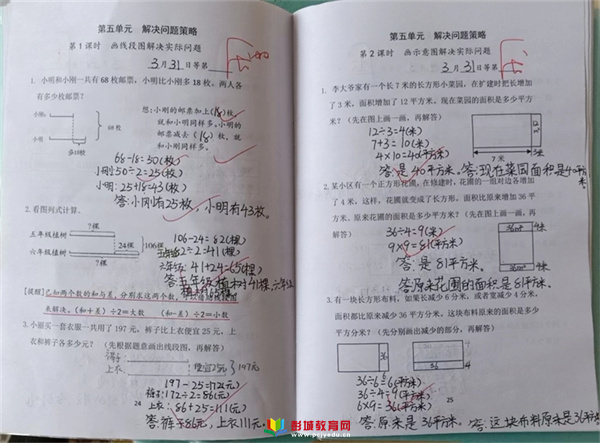 第五单元 解决问题策略
第1课时 画线段图解决实际问题
3月31日等第
1. 小明和小刚一共有68枚邮票，小明比小刚多18枚。两人各
有多少枚邮票？
想：小刚的邮票加上(18)枚，
就和小明同样多。小明的
邮票减去(18)枚，就
和小刚同样多。
小明
小刚
68枚
多18枚
68-18=50(枚)
小刚：50÷2=25(枚)
小明：25+18=43(枚)
答：小刚有25枚，小明有43枚。
2. 看图列式计算。
?棵
五年级植树
24棵
106棵
六年级植树
?棵
106-24=82(棵)
82÷2=41(棵)
六年级：41+24=65(棵)
答：五年级植树41棵，六年级
[提醒]已知两个数的和与差，分别求这两个数，
来解决。(和+差)÷2=大数 (和-差)÷2=小数
3. 小丽买一套衣服一共用了197元，裤子比上衣便宜25元，上
衣和裤子各多少元？(先根据题意画出线段图，再解答)
裤子
上衣
便宜25元
197元
197-25=172(元)
裤：172÷2=86(元)
上衣：86+25=111(元)
答：裤子86元，上衣111元。
24
第五单元 解决问题策略
第2课时 画示意图解决实际问题
3月31日等第
1. 李大爷家有一个长7米的长方形小菜园，在扩建时把长增加
了3米，面积增加了12平方米。现在菜园的面积是多少平方
米？(先在图上画一画，再解答)
12÷3=4(米)
7+3=10(米)
4×10=40(平方米)
7米
3米
答：是40平方米。答：现在菜园面积是40平方米。
2. 某小区有一个正方形花圃，在修建时，花圃的一组对边各增加
了4米，这样，花圃就变成了长方形，面积比原来增加36平
方米。原来花圃的面积是多少平方米？(先在图上画一画，再
解答)
36÷4=9(米)
9×9=81(平方米)
答：是81平方米。
4米
答：原来花圃的面积是81平方米。
3. 有一块长方形布料，如果长减少6分米，或者宽减少4分米，
面积都比原来减少36平方分米。这块布料原来的面积是多少
平方分米？(先分别画出减少的部分，再解答)
36÷6=6(平方米)
36÷4=9(平方米)
6×9=36(平方米)
25
答：原来是36平方米。答：这块布料原来是36平方米
彭城教育网
www.pcjyedu.cn